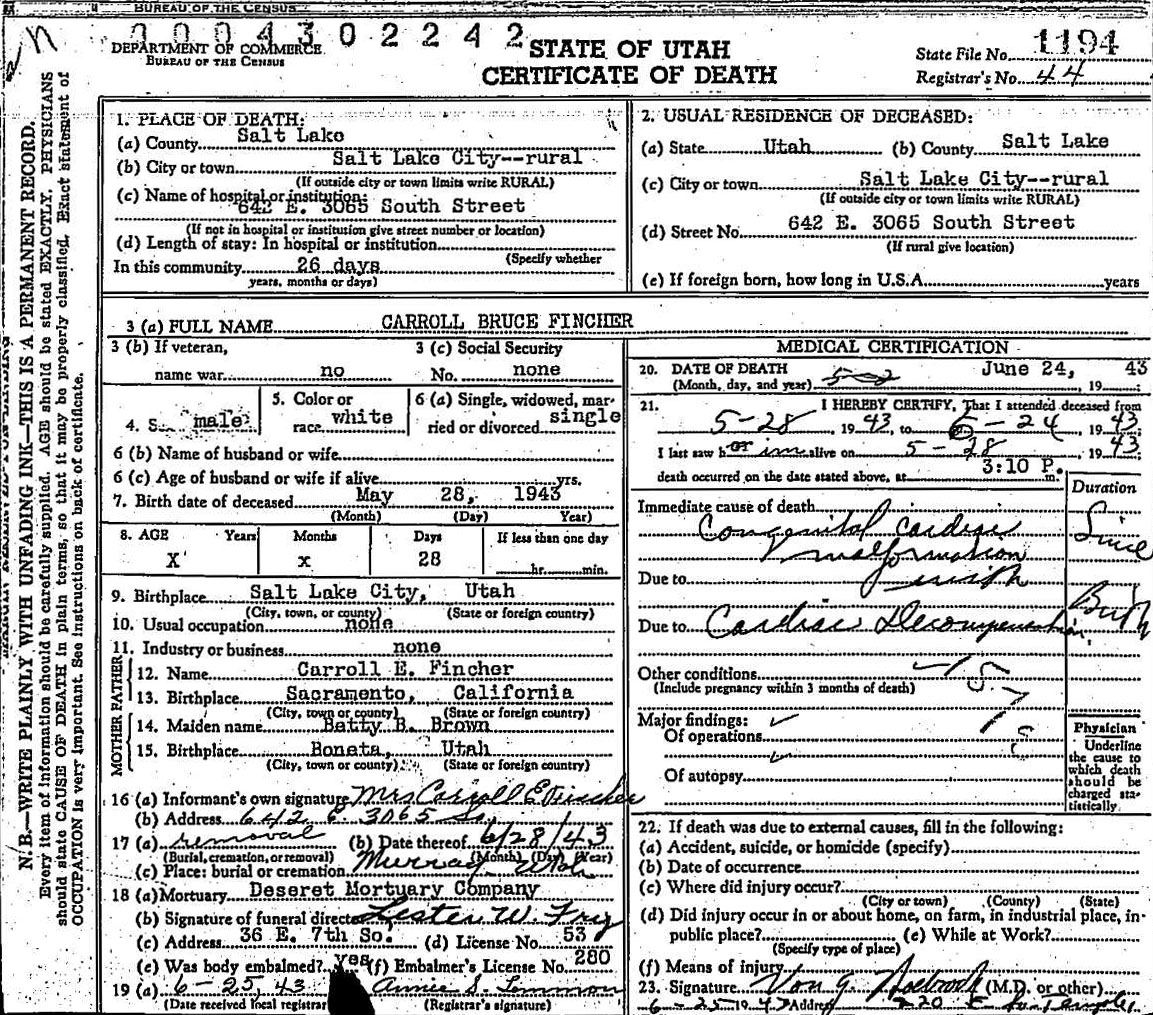 BUREAU OF THE CENSUS
0004302242
DEPARTMENT OF COMMERCE
BUREAU OF THE CENSUS
STATE OF UTAH
CERTIFICATE OF DEATH
State File No. 1194
Registrar's No. 44
N.B.—WRITE PLAINLY WITH UNFADING INK—THIS IS A PERMANENT RECORD.
Every item of information should be carefully supplied. AGE should be stated EXACTLY. PHYSICIANS
should state CAUSE OF DEATH in plain terms, so that it may be properly classified. Exact statement of
OCCUPATION is very important. See instructions on back of certificate.
1. PLACE OF DEATH:
(a) County Salt Lake
(b) City or town Salt Lake City--rural
(If outside city or town limits write RURAL)
(c) Name of hospital or institution:
642 E. 3065 South Street
(If not in hospital or institution give street number or location)
(d) Length of stay: In hospital or institution
(Specify whether
In this community 26 days
years, months or days)
2. USUAL RESIDENCE OF DECEASED:
(a) State Utah (b) County Salt Lake
(c) City or town Salt Lake City--rural
(If outside city or town limits write RURAL)
(d) Street No. 642 E. 3065 South Street
(If rural give location)
(e) If foreign born, how long in U.S.A. years
3 (a) FULL NAME CARROLL BRUCE FINCHER
3 (b) If veteran, 3 (c) Social Security
name war no No. none
4. S male 5. Color or race white 6 (a) Single, widowed, married or divorced single
6 (b) Name of husband or wife
6 (c) Age of husband or wife if alive yrs.
7. Birth date of deceased May 28, 1943
(Month) (Day) Year)
8. AGE Years Months Days If less than one day
X x 28 hr. min.
9. Birthplace Salt Lake City, Utah
(City, town, or county) (State or foreign country)
10. Usual occupation none
11. Industry or business none
FATHER
12. Name Carroll E. Fincher
13. Birthplace Sacramento, California
(City, town or county) (State or foreign country)
MOTHER
14. Maiden name Betty B. Brown
15. Birthplace Boneta, Utah
(City, town or county) (State or foreign country)
16 (a) Informant's own signature Mrs Carroll E Fincher
(b) Address 642 E. 3065 So.
17 (a) removal (b) Date thereof 6/28/43
(Burial, cremation, or removal) (Month) (Day) (Year)
(c) Place: burial or cremation Murray Utah
18 (a) Mortuary Deseret Mortuary Company
(b) Signature of funeral director Lester W. Frey
(c) Address 36 E. 7th So. (d) License No. 53
(e) Was body embalmed? yes (f) Embalmer's License No. 280
19 (a) 6-25, 43 Annie S. Lemmon
(Date received local registrar (Registrar's signature)
MEDICAL CERTIFICATION
20. DATE OF DEATH June 24, 43
(Month, day, and year) 19
21. I HEREBY CERTIFY, That I attended deceased from
5-28, 1943, to 6-24, 1943
I last saw h or im alive on 5-28, 1943
death occurred on the date stated above, at 3:10 P. m.
Duration
Immediate cause of death
Congenital Cardiac
malformation
Since
Due to with
Birth
Due to Cardiac Decompensation
Other conditions
(Include pregnancy within 3 months of death)
157
Major findings:
Of operations
Of autopsy
Physician
Underline
the cause to
which death
should be
charged sta-
tistically.
22. If death was due to external causes, fill in the following:
(a) Accident, suicide, or homicide (specify)
(b) Date of occurrence
(c) Where did injury occur?
(City or town) (County) (State)
(d) Did injury occur in or about home, on farm, in industrial place, in-
public place? (e) While at Work?
(Specify type of place)
(f) Means of injury
23. Signature Von G. Holbrook (M.D. or other)
6-25-1943 Address 220 E So. Temple